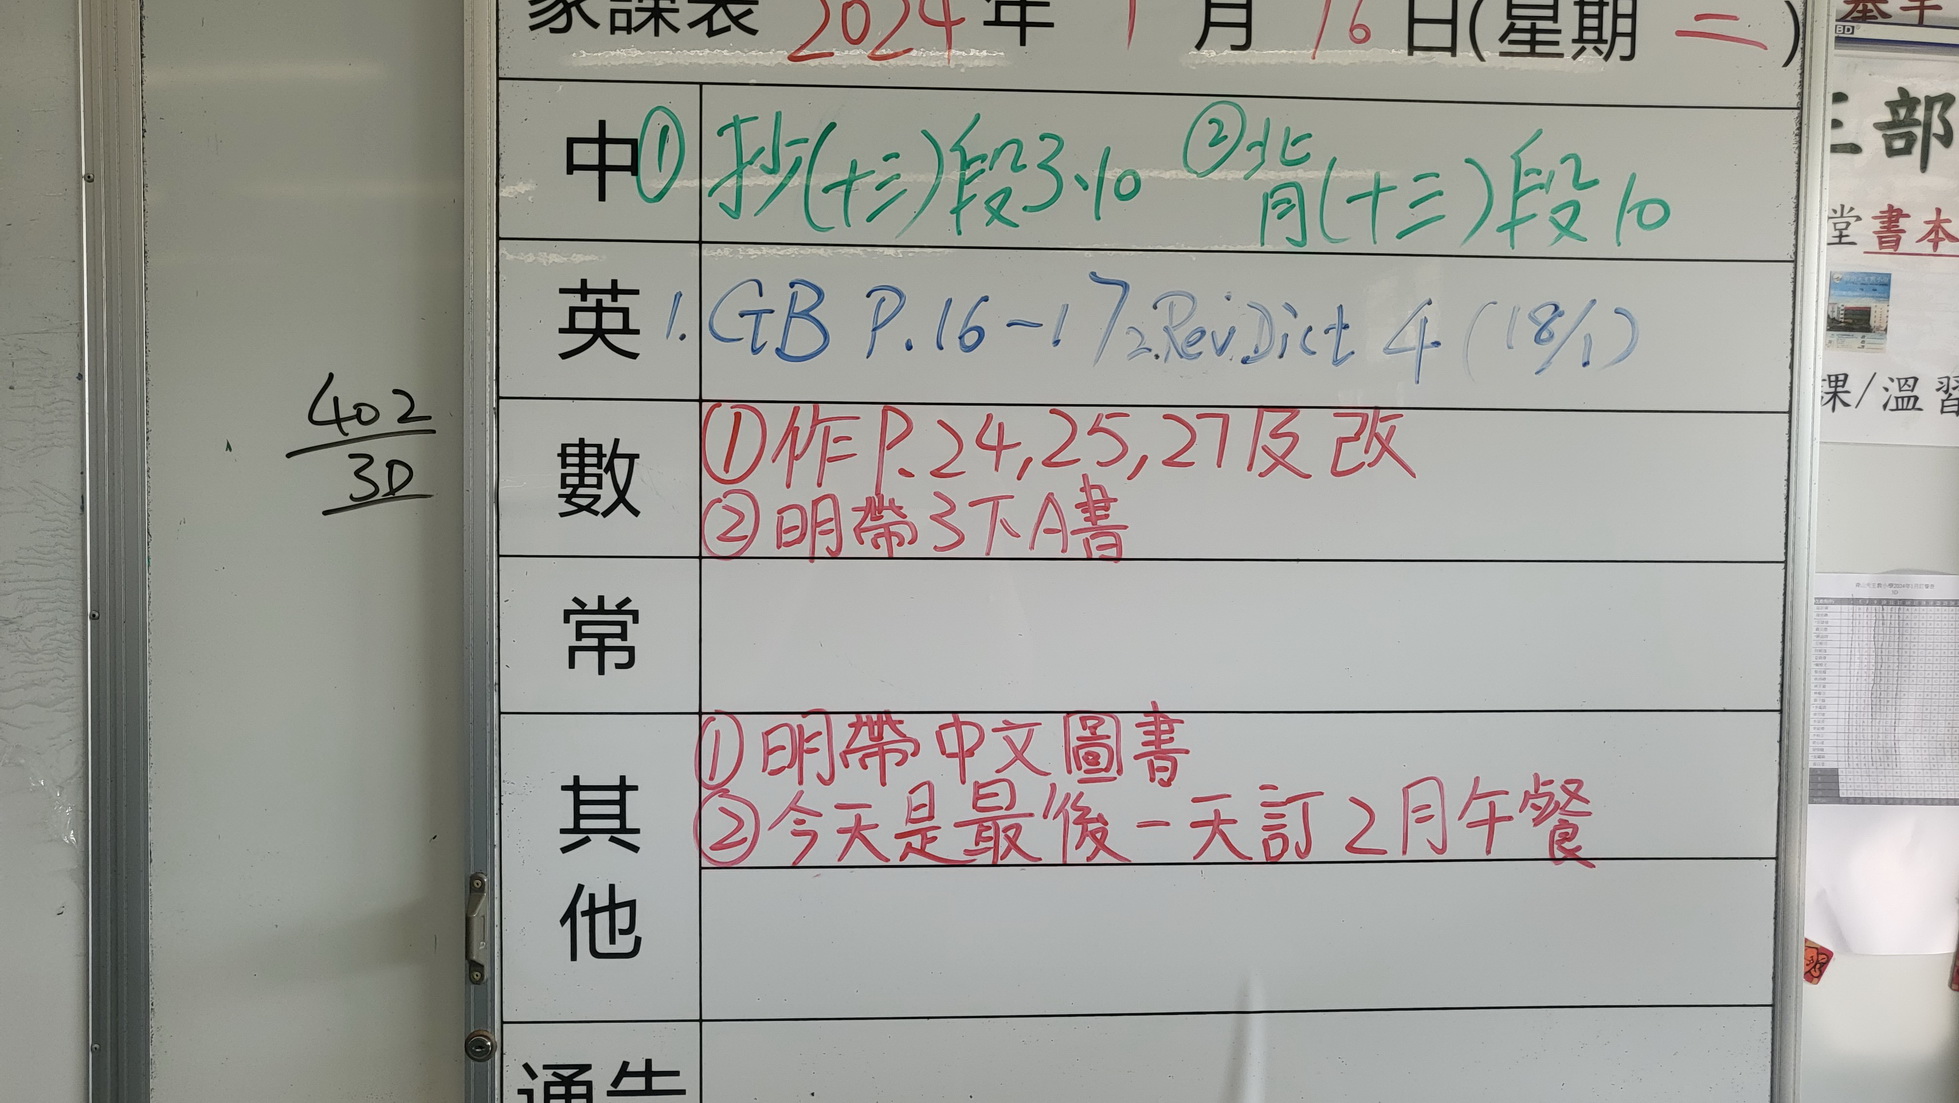 家課表 2024年 1月 16日(星期 二)
中 ① 抄(十三)段3、10 ② 背(十三)段10
英 1. GB P.16-17 2. Rev. Dict 4 (18/1)
數 ① 作P.24,25,27及改
② 明帶3下A書
常
其他 ① 明帶中文圖書
② 今天是最後一天訂2月午餐
通告
402
3D
三部
堂書本
課/溫習